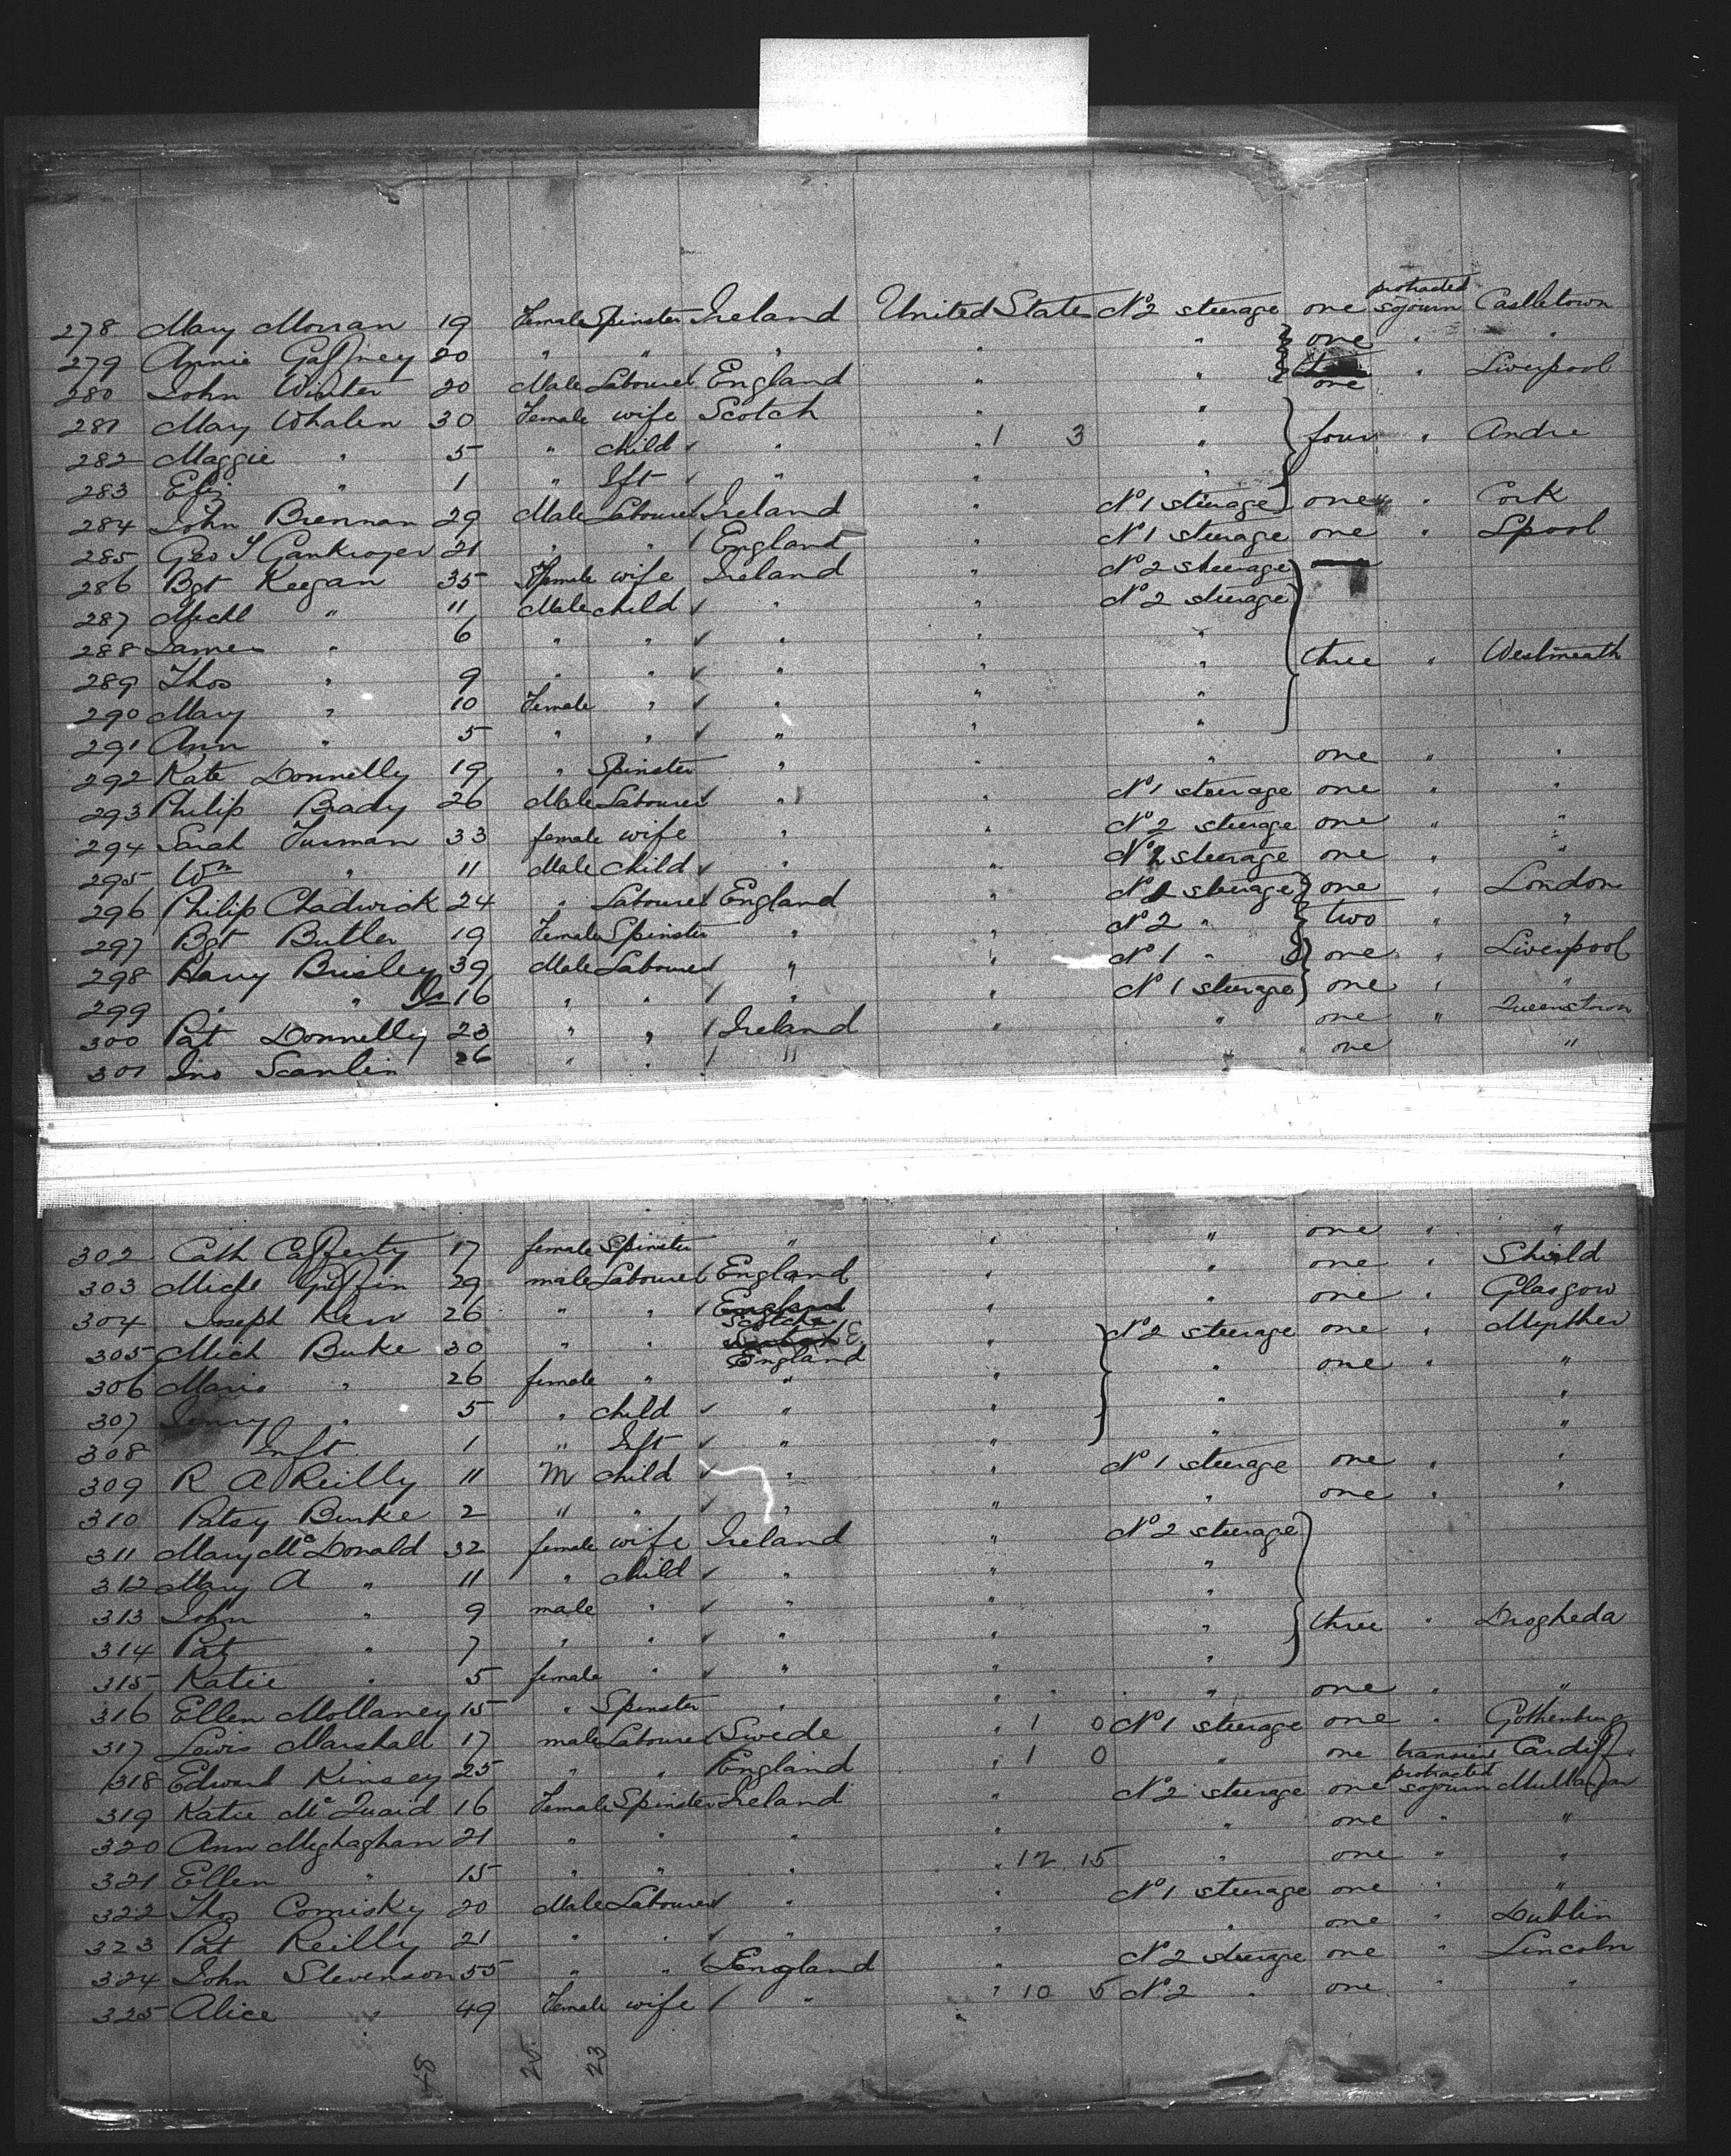 278 Mary Morran 19 Female Spinster Ireland United State No 2 steerage one protracted sojourn Castletown
279 Annie Gaffney 20 " " " " " one " "
280 John Winter 20 Male Labourer England " " one " Liverpool
281 Mary Whalen 30 Female wife Scotch " "
282 Maggie " 5 " child " " 1 3 " four " Andre
283 Eliz " 1 " Ift " " "
284 John Brennan 29 Male Labourer Ireland " No 1 steerage one " Cork
285 Geo Gankroger 21 " " England " No 1 steerage one " Lpool
286 Bgt Keegan 35 Female wife Ireland " No 2 steerage
287 Michl " 11 Male child " " No 2 steerage
288 James " 6 " " " " "
289 Thos " 9 " " " " " three " Westmeath
290 Mary " 10 Female " " " "
291 Ann " 5 " " " " "
292 Kate Donnelly 19 " Spinster " " " one " "
293 Philip Brady 26 Male Labourer " " No 1 steerage one " "
294 Sarah Furman 33 female wife " " No 2 steerage one " "
295 Wm " 11 Male child " " No 2 steerage one " "
296 Philip Chadwick 24 " Labourer England " No 1 steerage one " London
297 Bgt Butler 19 Female Spinster " " No 2 " two " "
298 Harry Brisley 39 Male Labourer " " No 1 " one " Liverpool
299 " " Jr 16 " " " " No 1 steerage one " "
300 Pat Donnelly 23 " " Ireland " " one " Queenstown
301 Jno Scanlin 26 " " " " one "
302 Cath Cafferty 17 female Spinster " " " one " "
303 Michl Griffin 29 male Labourer England " " one " Shield
304 Joseph Kerr 26 " " England Scotch " " one " Glasgow
305 Mich Burke 30 " " England " No 2 steerage one " Myrther
306 Maria " 26 female " " " " one " "
307 Jenny " 5 " child " " " "
308 Inft 1 " Ift " " " "
309 R A Reilly 11 M child " " No 1 steerage one " "
310 Patsy Burke 2 " " " " " one " "
311 Mary McDonald 32 female wife Ireland " No 2 steerage
312 Mary A " 11 " child " " "
313 John " 9 male " " " "
314 Pat " 7 " " " " " three " Drogheda
315 Katie " 5 female " " " "
316 Ellen Mollaney 15 " Spinster " " " one " "
317 Lewis Marshall 17 male Labourer Swede " 1 0 No 1 steerage one " Gothenburg
318 Edward Kinsey 25 " " England " 1 0 " one transient Cardiff
319 Katie McQuaid 16 Female Spinster Ireland " No 2 steerage one protracted sojourn Mullangar
320 Ann Meghaghan 21 " " " " " one " "
321 Ellen " 15 " " " " 12 15 " one " "
322 Thos Comisky 20 Male Labourer " " No 1 steerage one " "
323 Pat Reilly 21 " " " " " one " Dublin
324 John Stevenson 55 " " England " No 2 steerage one " Lincoln
325 Alice " 49 Female wife " " 10 5 No 2 " one " "
48 25 23